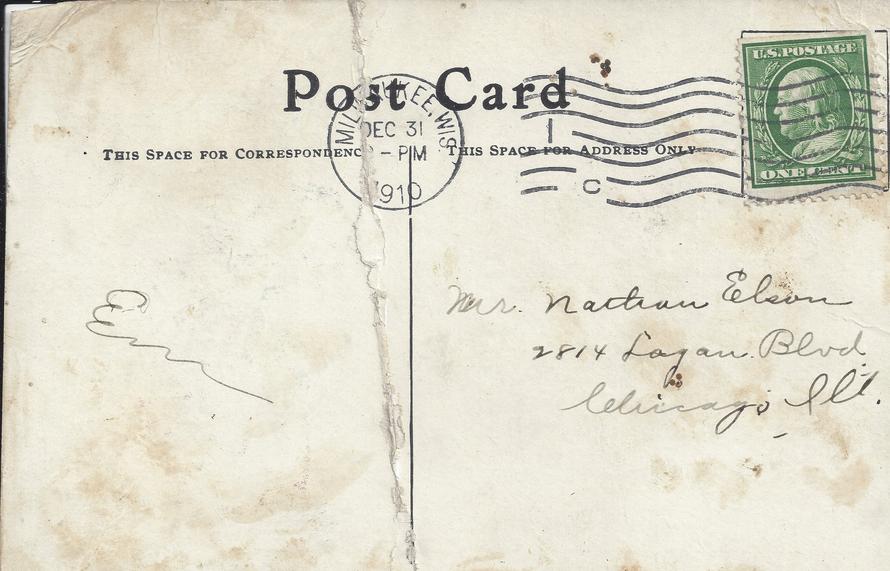 Post Card
MILWAUKEE, WIS.
DEC 31
- PM
1910
THIS SPACE FOR CORRESPONDENCE
THIS SPACE FOR ADDRESS ONLY
1
C
U.S. POSTAGE
ONE CENT
Mr. Nathan Elson
2814 Logan Blvd
Chicago Ill.